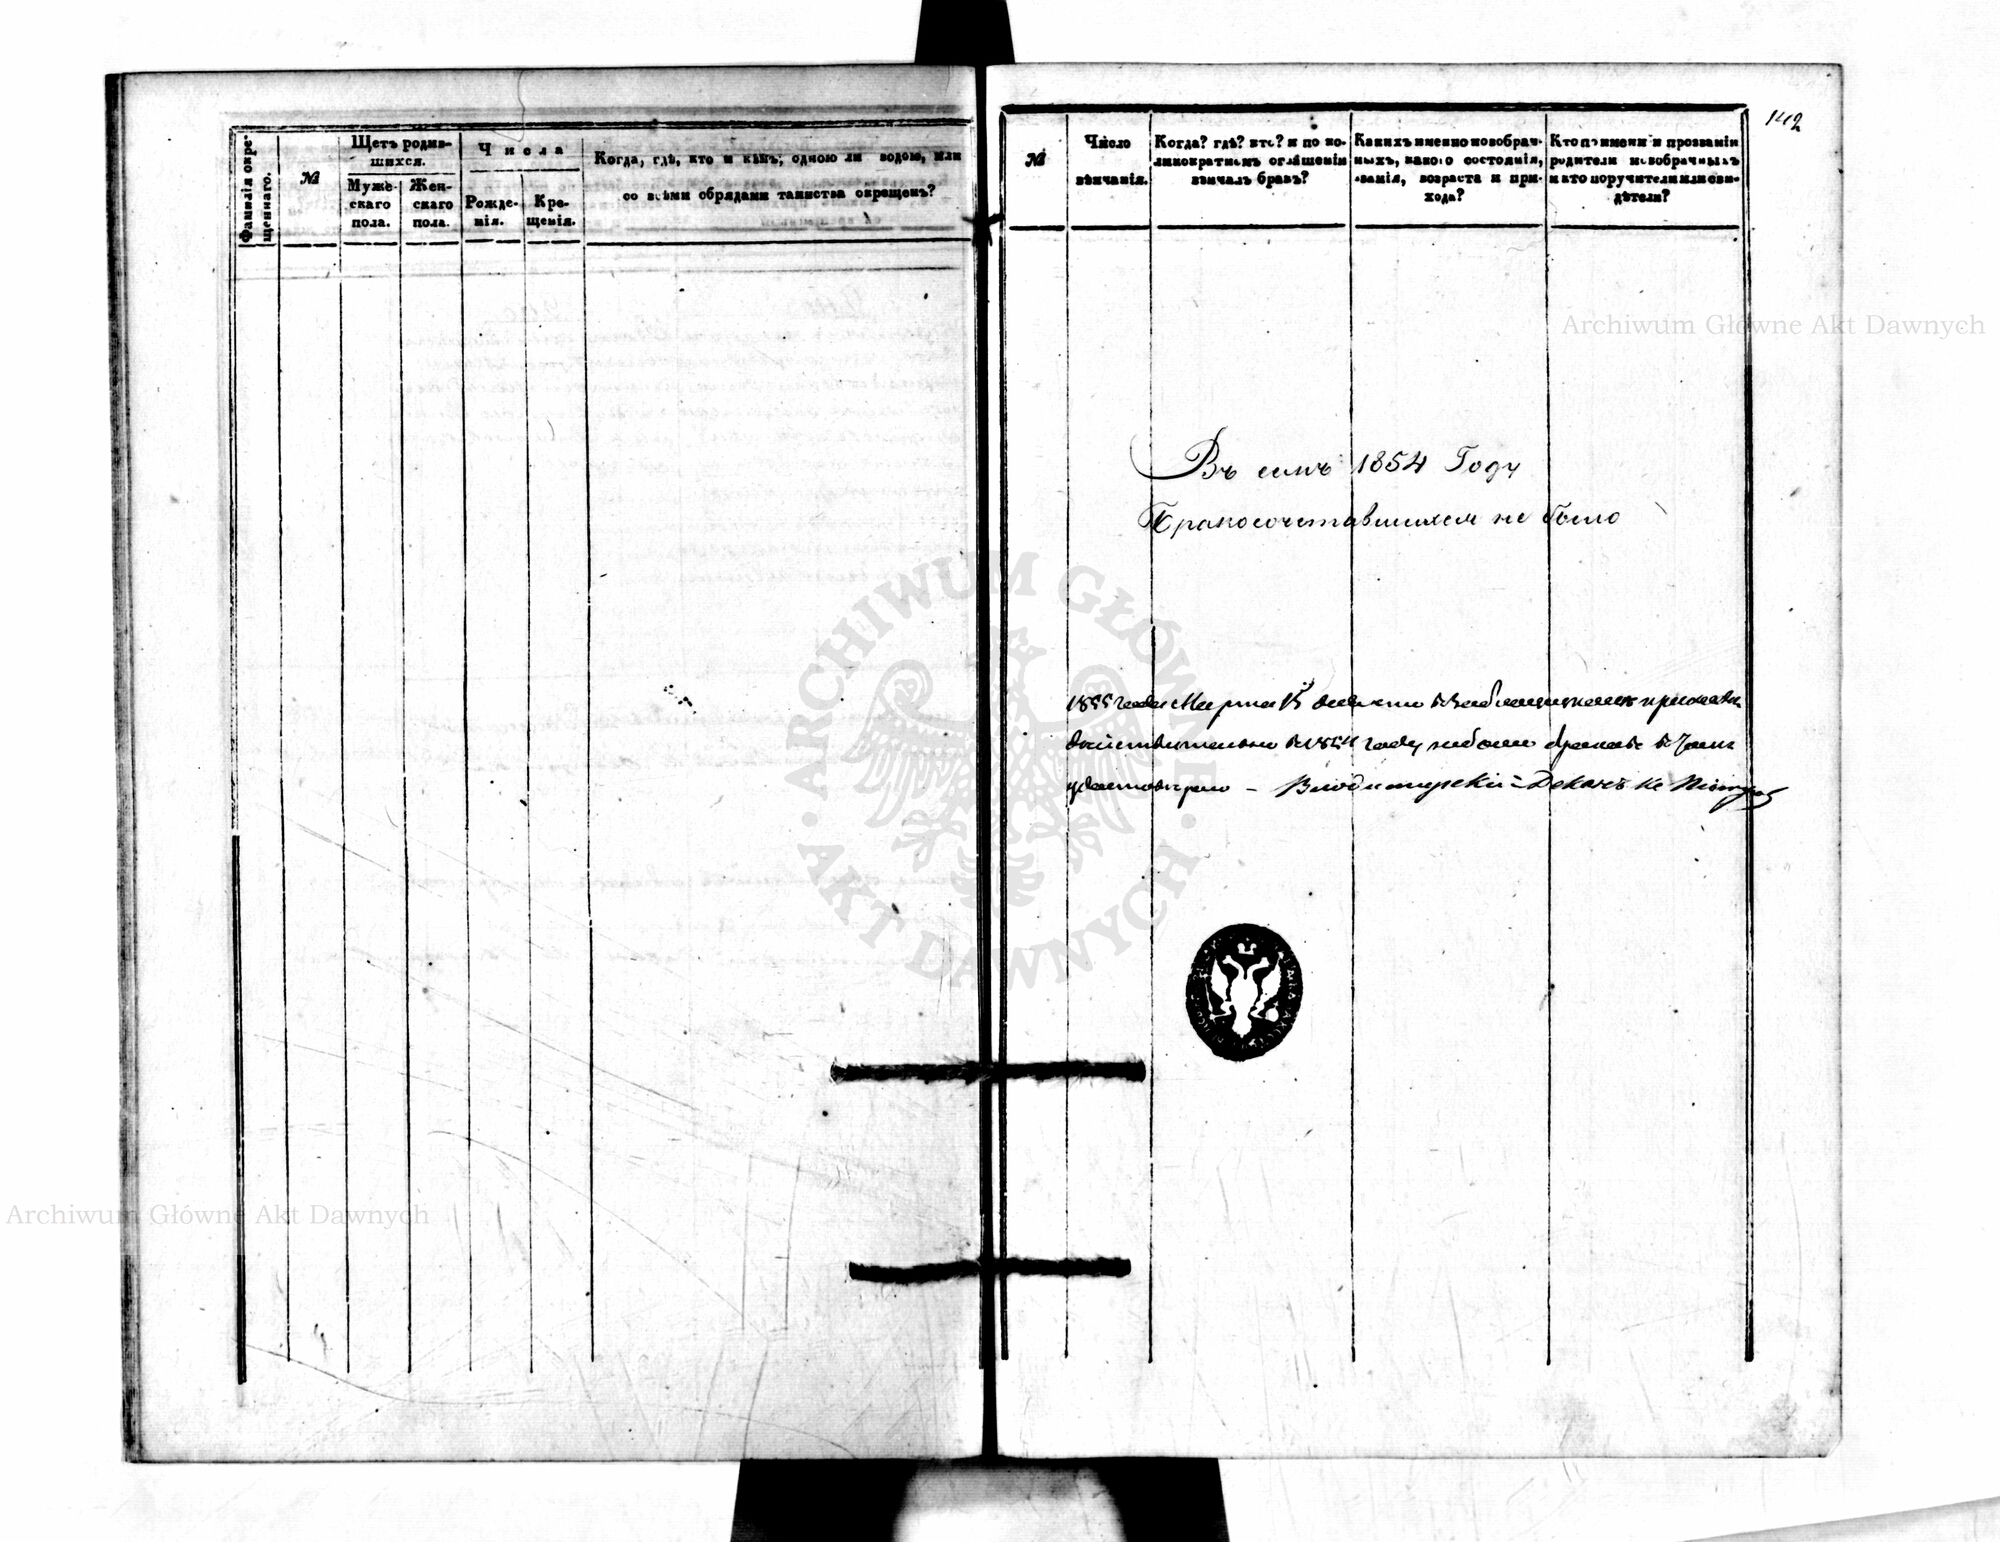 Фамилія окре-
щеннаго.
№
Щетъ родив-
шихся.
Муже-
скаго
пола.
Жен-
скаго
пола.
Числа
Рожде-
нія.
Кре-
щенія.
Когда, гдѣ, кто и кѣмъ, одною ли водою, или
со всѣми обрядами таинства окрещенъ?
142
№
Число
вѣнчанія.
Когда? гдѣ? кто? и по ко-
ликократномъ оглашеніи
вѣнчалъ бракъ?
Какихъ именно новобрач-
ныхъ, какого состоянія,
званія, возраста и при-
хода?
Кто по имени и прозванію
родители новобрачныхъ
и кто поручители или сви-
дѣтели?
Въ семъ 1854 Году
Бракосочетавшихся не было
1855 года Марта 15
действительно в 1854 году небыло браков в чем
удостоверяю - Владимирскій Деканъ Кс
Archiwum Główne Akt Dawnych
Archiwum Główne Akt Dawnych
ARCHIWUM GŁÓWNE
AKT DAWNYCH